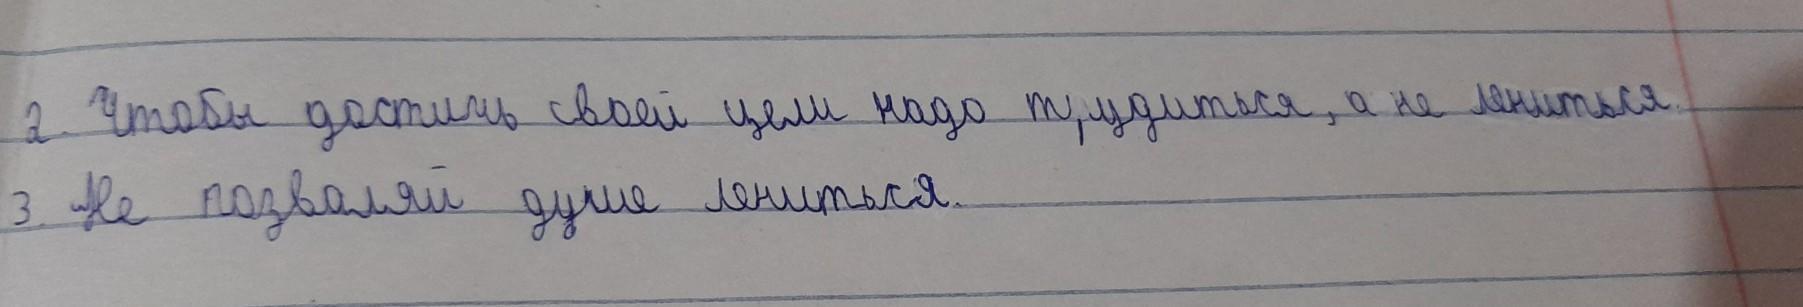 2. Чтобы достичь своей цели надо трудиться, а не лениться.
3. Не позваляй душе лениться.